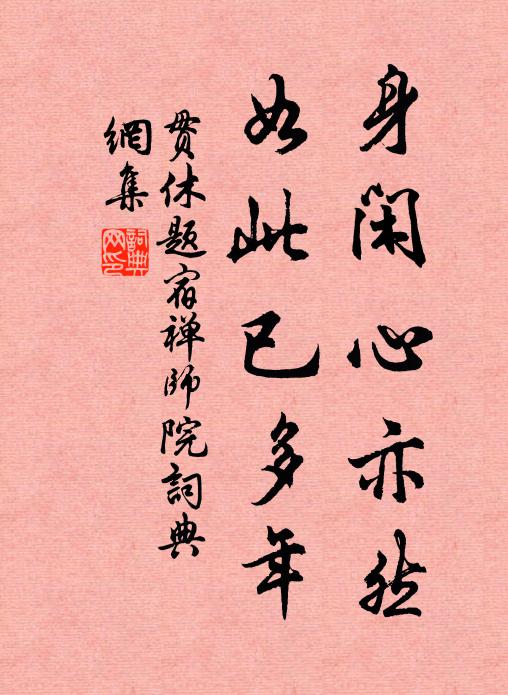 身閑心亦然
如此已多年
贯休题宿禅師院詞典
網集
詞典網印